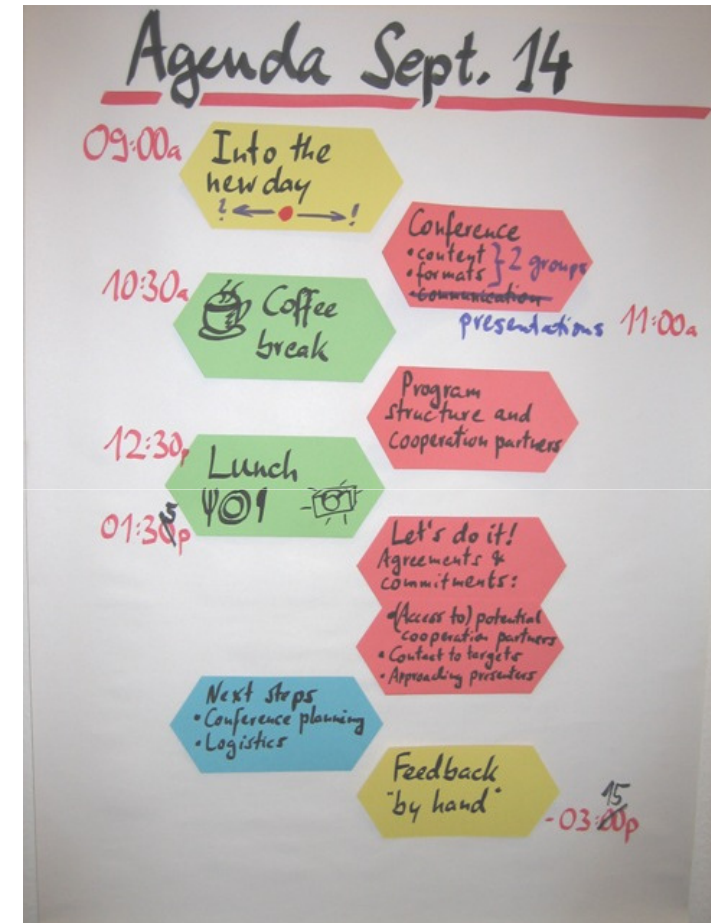 Agenda Sept. 14
09:00a
Into the
new day
? !
Conference
• content } 2 groups
• formats
• communication
presentations 11:00a
10:30a
Coffee
break
Program
structure and
cooperation partners
12:30p
Lunch
01:35p
Let's do it!
Agreements &
commitments:
• (Access to) potential
cooperation partners
• Contact to targets
• Approaching presenters
Next steps
• Conference planning
• Logistics
Feedback
"by hand"
15
- 03:00p